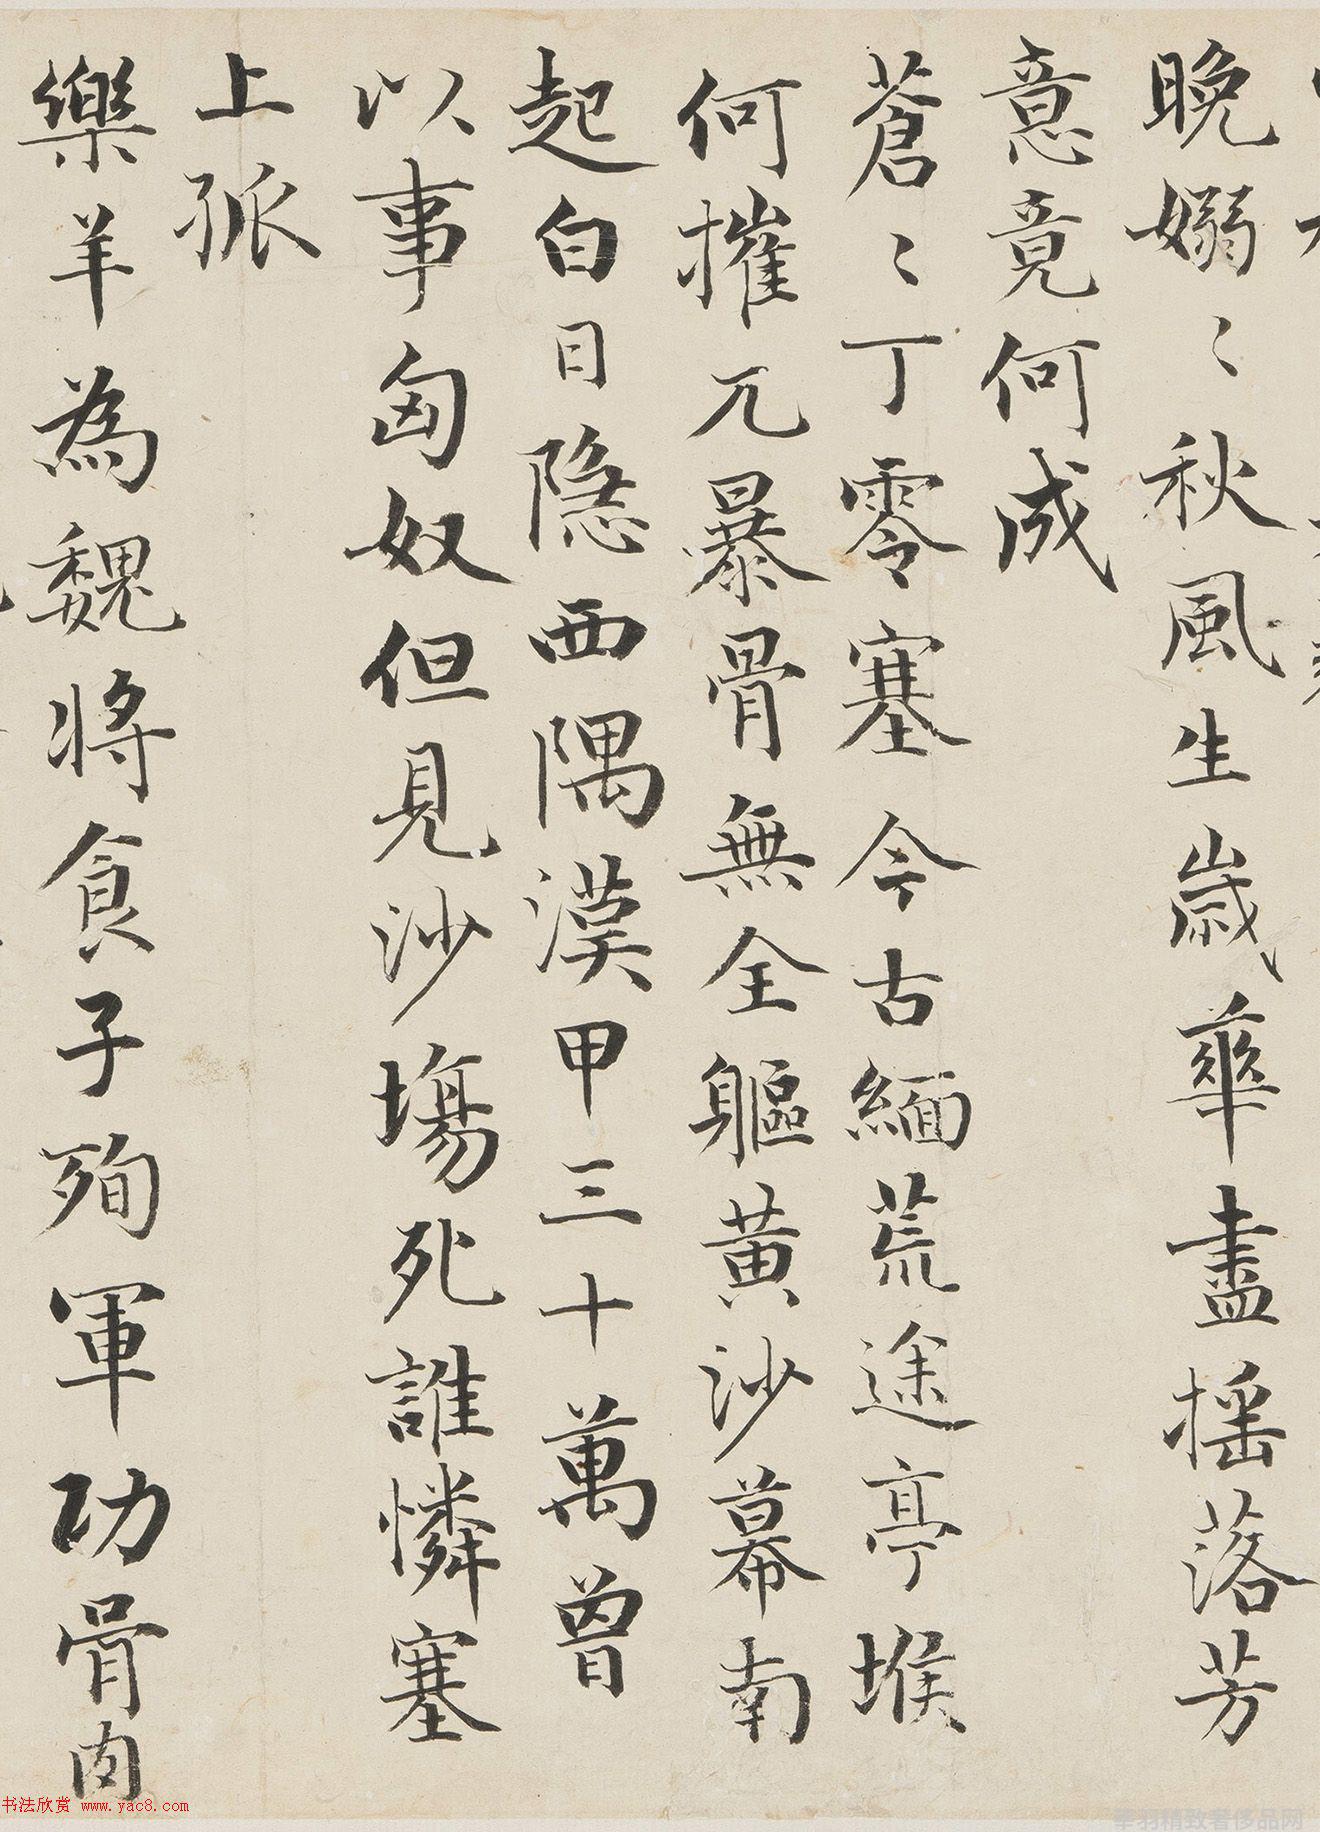 晚嫋〻秋風生歲華盡揺落芳
意竟何成
蒼〻丁零塞今古緬荒途亭堠
何摧兀暴骨無全軀黄沙幕南
起白日隱西隅漢甲三十萬曾
以事匈奴但見沙場死誰憐塞
上孤
樂羊為魏將食子殉軍功骨肉
书法欣赏 www.yac8.com
季羽精致奢侈品网